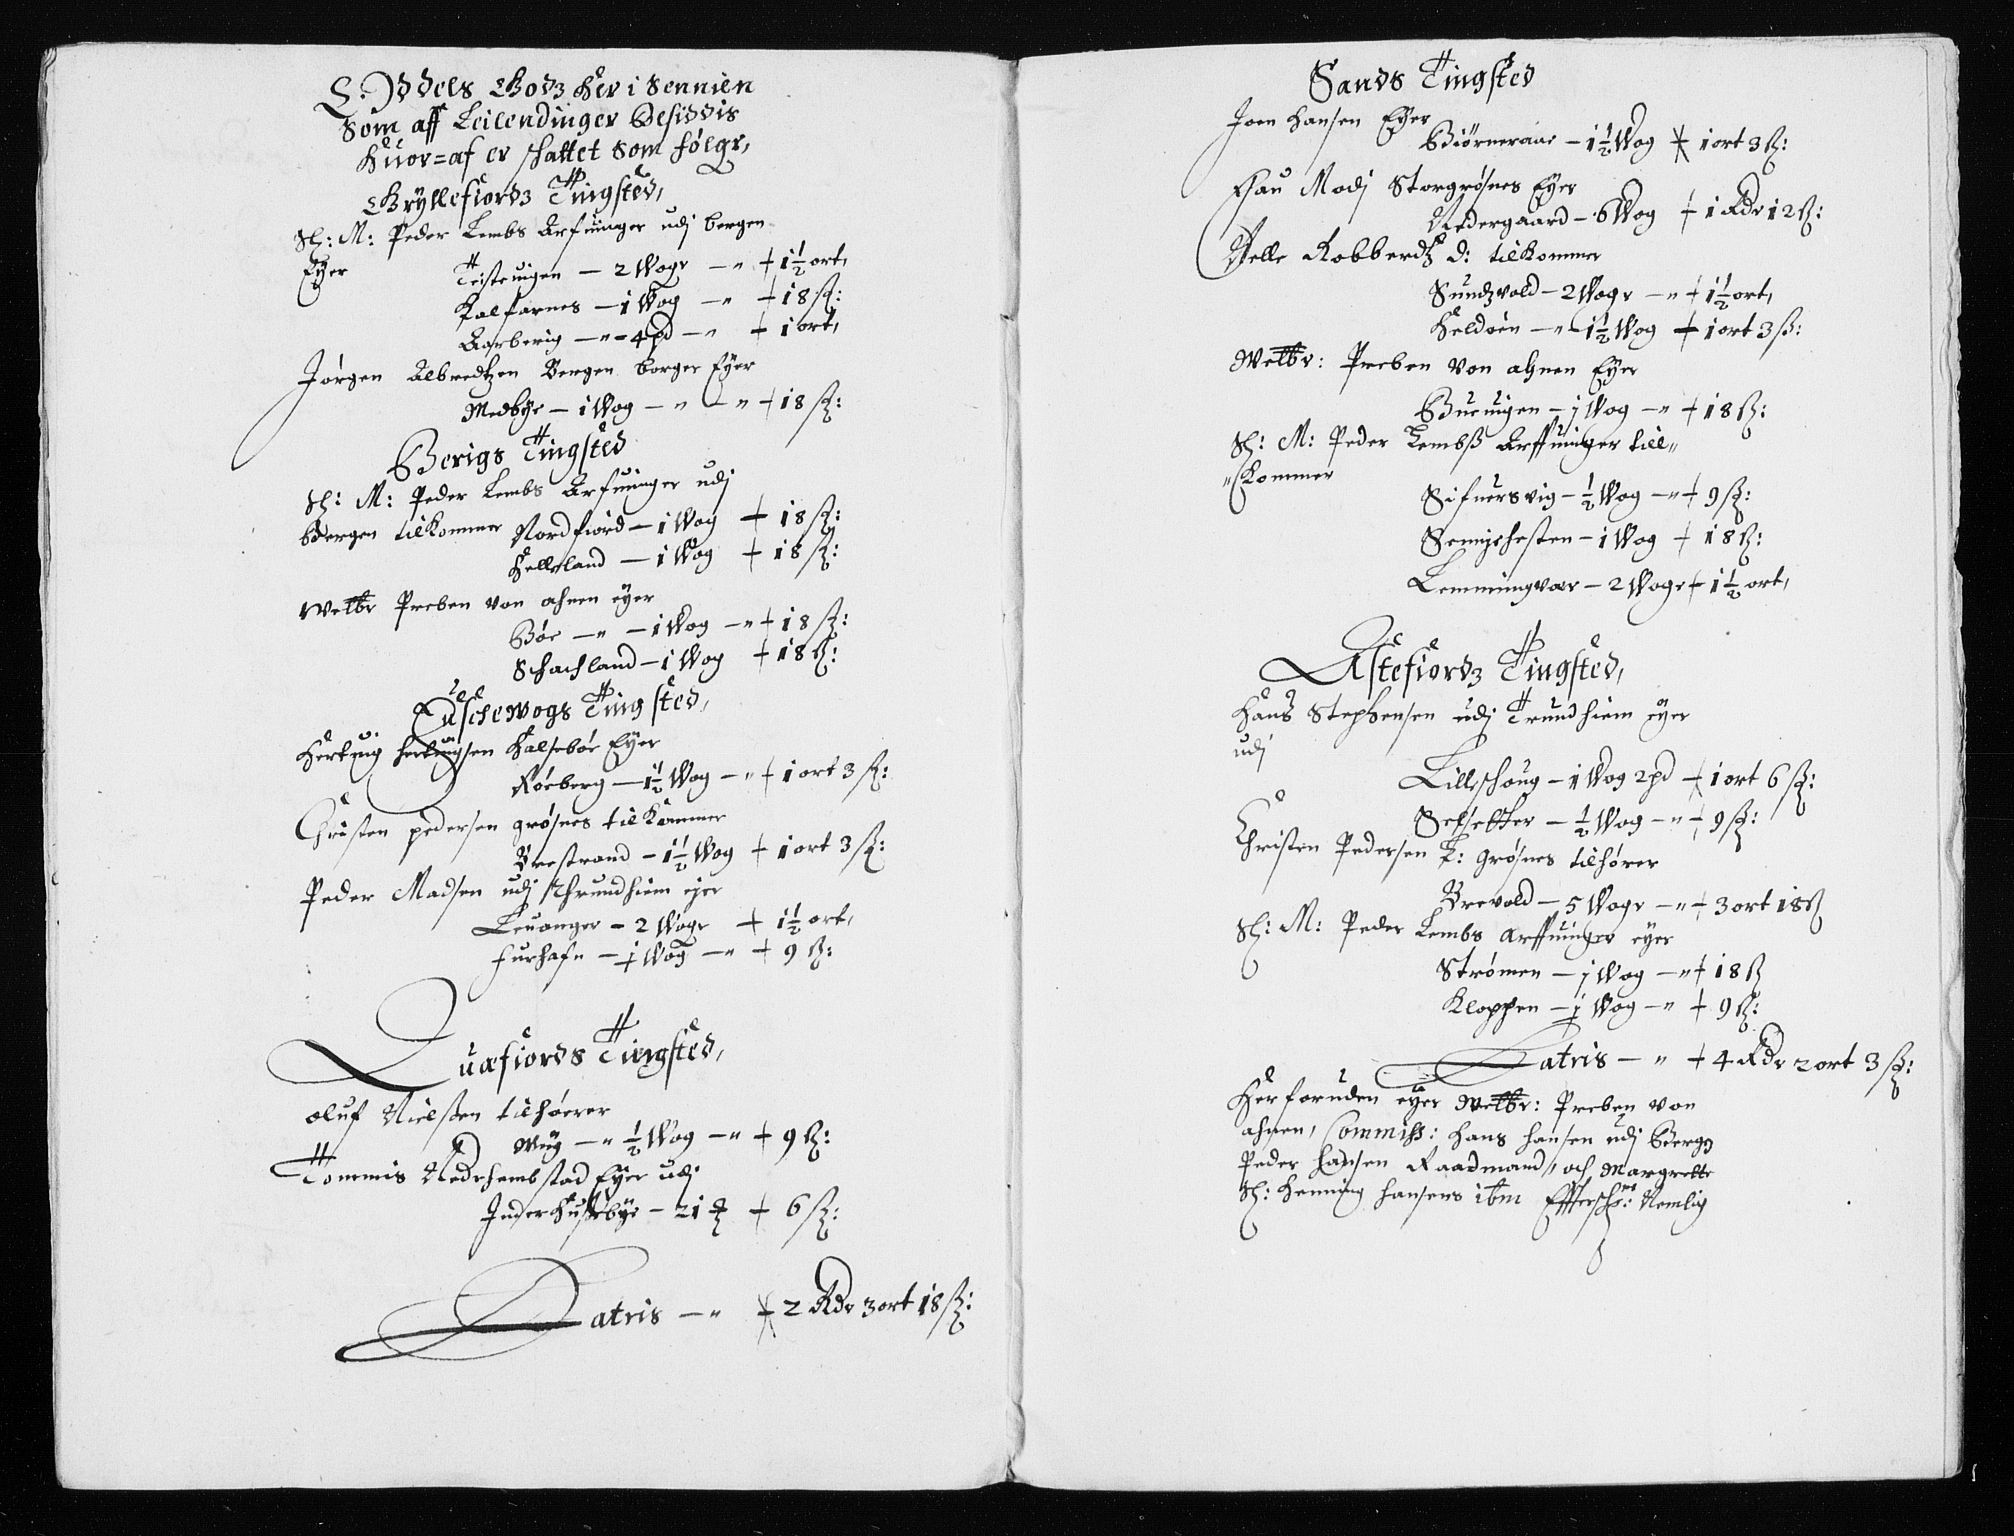 Oddels Godz her i Sennien
Som aff Leilendinger Besiddis
Huor=af er schattet Som følgr,
Gryllefiordz Tingsted,
Sl: M: Peder Lembs Arfuinger udj bergen
Eyer Teisteuigen — 2 Wogr — " + 1½ ort,
Kalfarnes — 1 Wog — " + 18 ß:
Aarberig — " - 4 pd — " + 1 ort,
Jørgen Albredtzen Bergen borger Eyer
Medbye — 1 Wog — " — " + 18 ß:
Berigs Tingsted
Sl: M: Peder Lembs Arfuinger udj
Bergen tilKommer Nordfiord — 1 Wog + 18 ß:
Helleland — 1 Wog + 18 ß:
Welbr Preben von ahnen eyer
Bøe — " — 1 Wog — " + 18 ß:
Schachland — 1 Wog + 18 ß:
Tuschewogs Tingsted,
Hertuig hertuigsen Halsebøe Eyer
Røeberg — 1½ Wog — " + 1 ort 3 ß:
Christen pedersen grøsnes tilKommer
Brestrand — 1½ Wog + 1 ort 3 ß:
Peder Madsen udj Thrundhiem ejer
Leuanger — 2 Wogr + 1½ ort,
furhafn — ½ Wog — " + 9 ß:
Quæfiords Tingsted,
oluf Nielsen tilhører
Wiig — " ½ Wog — " + 9 ß:
Tommis Nedrhembstad Eyer udj
Inderhusebye — 21 + 6 ß:
Latris — " + 2 Rdr 3 ort 18 ß:
Sands Tingsted
Joen Hansen Eyer
Biørneraae — 1½ Wog + 1 ort 3 ß:
Esau Modj Storgrøsnes Eyer
Nedergaard — 6 Wog + 1 Rdr 12 ß:
Pelle Robberdtz d: tilKommer
Sundzvold — 2 Wogr — " + 1½ ort,
Heldøen — " 1½ Wog + 1 ort 3 ß:
Welbr: Preben von ahnen Eyer
Bueuigen — 1 Wog — " + 18 ß:
Sl: M: Peder Lembß Arffuinger till"
"Kommer
Sifuersvig — ½ Wog — " + 9 ß:
Sennjehesten — 1 Wog + 18 ß:
Lemmingvær — 2 Wogr + 1½ ort,
Astefiordz Tingsted,
Hans Stephensen udj Trundhiem eyer
udj
Lilleschoug — 1 Wog 2 pd + 1 ort 6 ß:
Setseltter — ½ Wog — " + 9 ß:
Christen Pedersen K: grøsnes tilhører
Brevold — 5 Wogr — " + 3 ort 18 ß
Sl: M: Peder Lembs arffuinger eyer
Strømen — 1 Wog — " + 18 ß
Kloppen — ½ Wog — " + 9 ß:
Latris — " + 4 Rdr 2 ort 3 ß:
Herforuden eyer Welbr: Preben von
ahnen, Commiss: Hans Hansen udj Bergg
Peder Hansen Raadmand, och Margrette
Sl: Henning Hansens ibm Effterschr: Nemlig